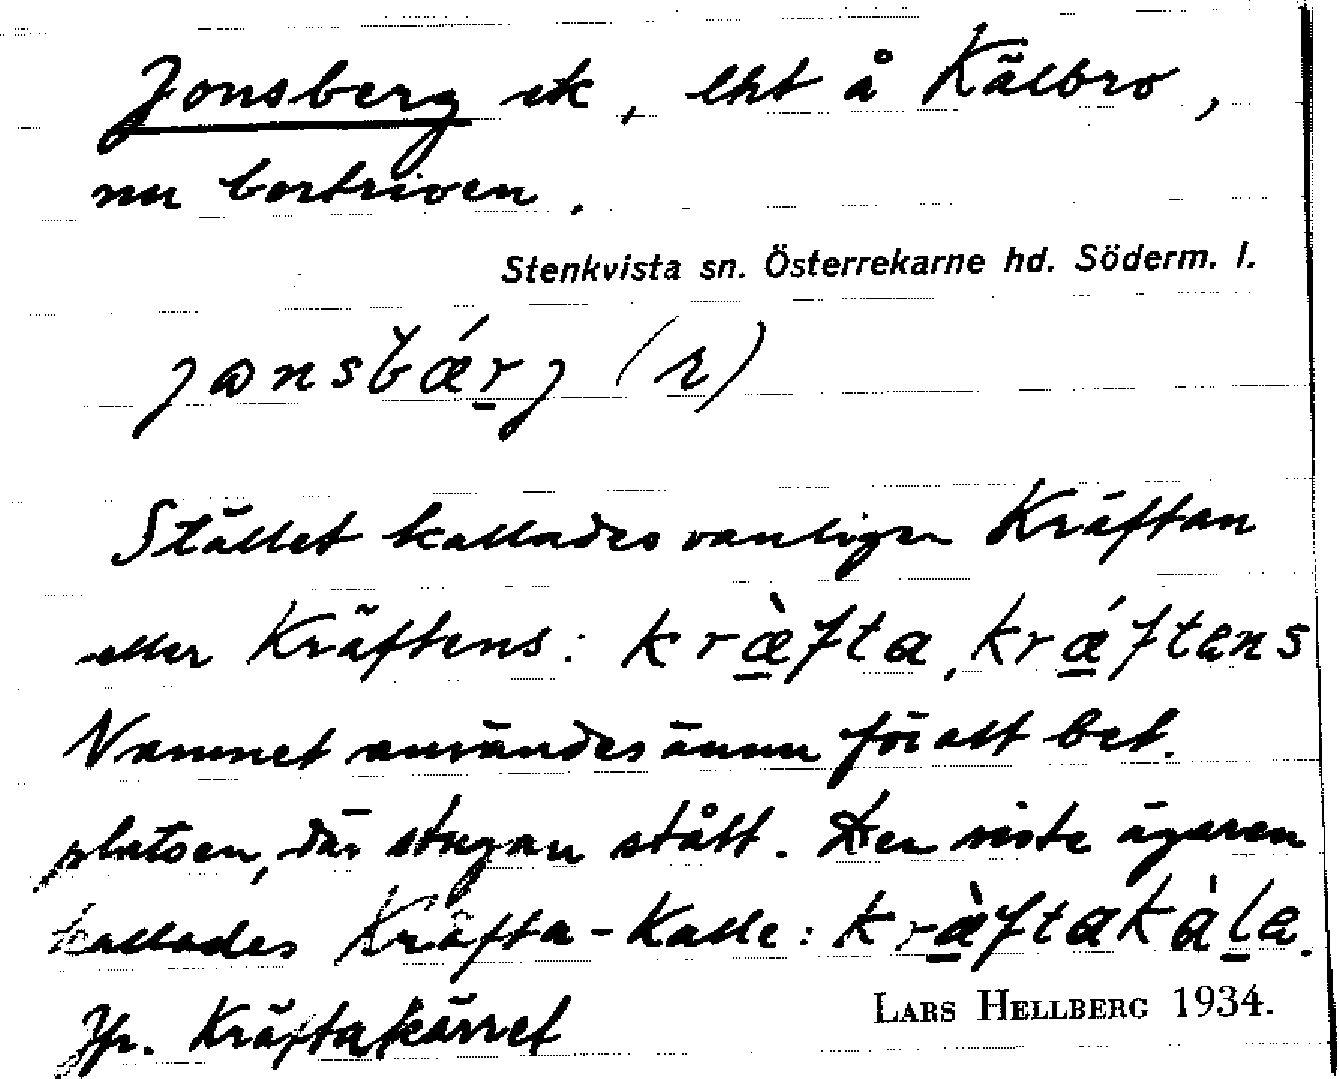 Jonsberg stk, lht å Kälbro,
nu bortriven.
Stenkvista sn. Österrekarne hd. Söderm. l.
jɷnsbǽrj (r)
Stället kallades vanligen Kräftan
eller Kräftens: kræ̀fta, krǽftens
Namnet användes ännu för att bet.
platsen, där stugan stått. Den siste ägaren
kallades Kräfta-Kalle: kræ̀ftakàla.
Jfr. Kräftakärret
LARS HELLBERG 1934.